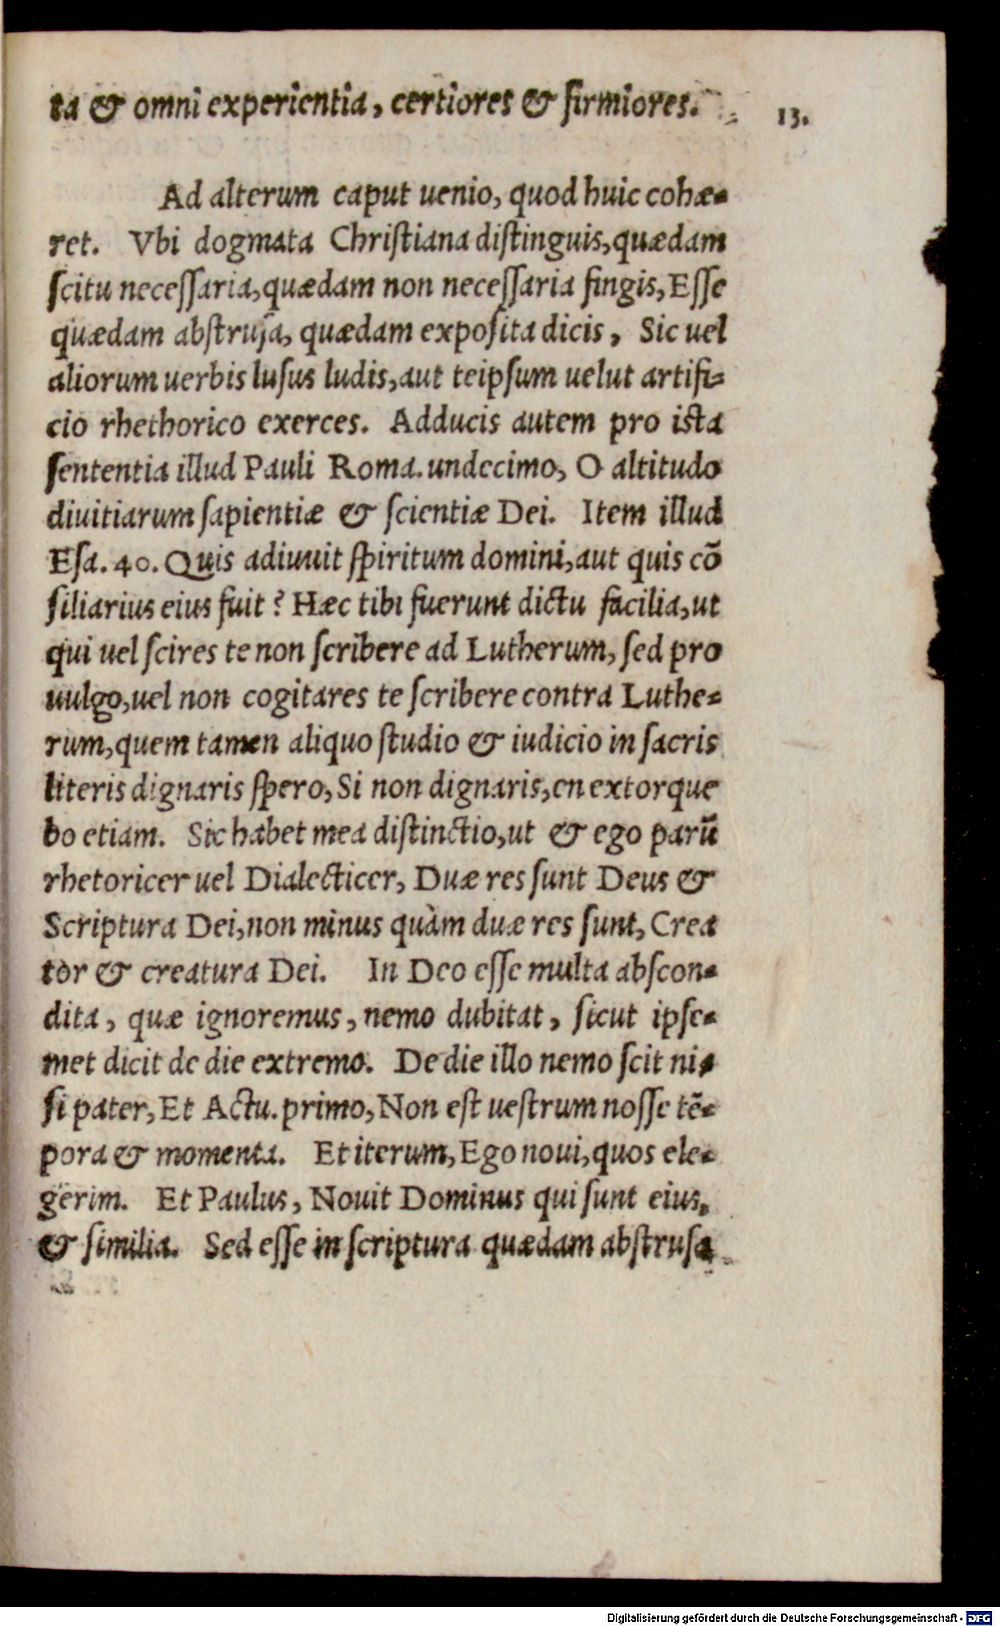 ta & omni experientia, certiores & firmiores.
13.
Ad alterum caput uenio, quod huic cohæ-
ret. Vbi dogmata Chriſtiana diſtinguis, quædam
ſcitu neceſſaria, quædam non neceſſaria fingis, Eſſe
quædam abſtruſa, quædam expoſita dicis, Sic uel
aliorum uerbis luſus ludis, aut teipſum uelut artifi-
cio rhethorico exerces. Adducis autem pro iſta
ſententia illud Pauli Roma. undecimo, O altitudo
diuitiarum ſapientiæ & ſcientiæ Dei. Item illud
Eſa. 40. Quis adiuuit ſpiritum domini, aut quis cõ
ſiliarius eius fuit? Hæc tibi fuerunt dictu facilia, ut
qui uel ſcires te non ſcribere ad Lutherum, ſed pro
uulgo, uel non cogitares te ſcribere contra Luthe-
rum, quem tamen aliquo ſtudio & iudicio in ſacris
literis dignaris ſpero, Si non dignaris, en extorque
bo etiam. Sic habet mea diſtinctio, ut & ego parũ
rhetoricer uel Dialecticer, Duæ res ſunt Deus &
Scriptura Dei, non minus quàm duæ res ſunt, Crea
tor & creatura Dei. In Deo eſſe multa abſcon-
dita, quæ ignoremus, nemo dubitat, ſicut ipſe-
met dicit de die extremo. De die illo nemo ſcit ni-
ſi pater, Et Actu. primo, Non eſt ueſtrum noſſe tẽ-
pora & momenta. Et iterum, Ego noui, quos ele-
gerim. Et Paulus, Nouit Dominus qui ſunt eius,
& ſimilia. Sed eſſe in ſcriptura quædam abſtruſa
Digitalisierung gefördert durch die Deutsche Forschungsgemeinschaft - DFG